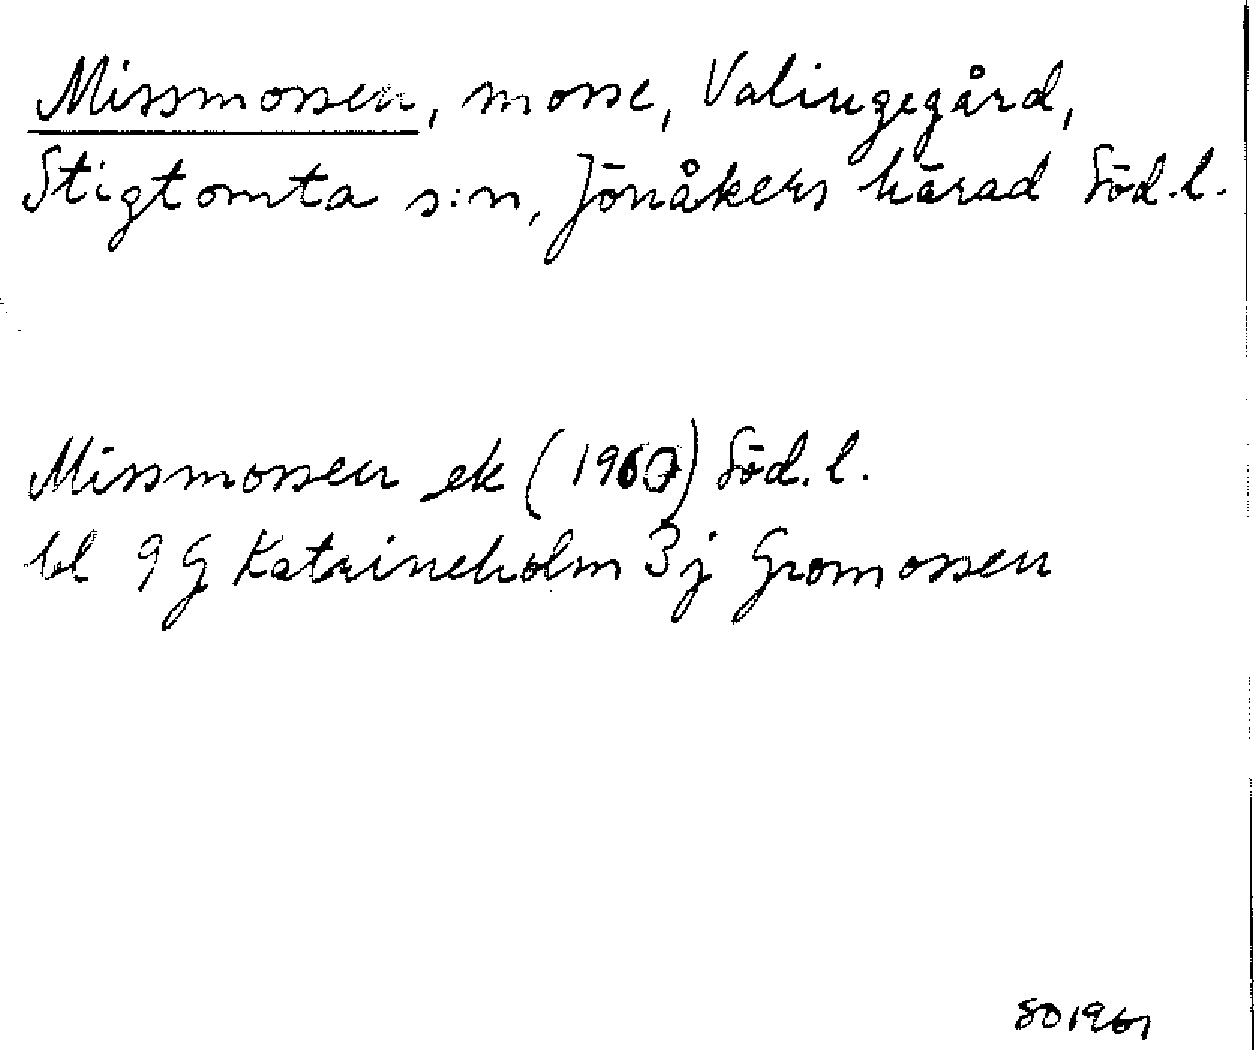 Missmossen, mosse, Valingegård,
Stigtomta s:n, Jönåkers härad Söd.l.
Missmossen ek (1960) Söd.l.
bl 9 G Katrineholm 3j Gromossen
SO 1961